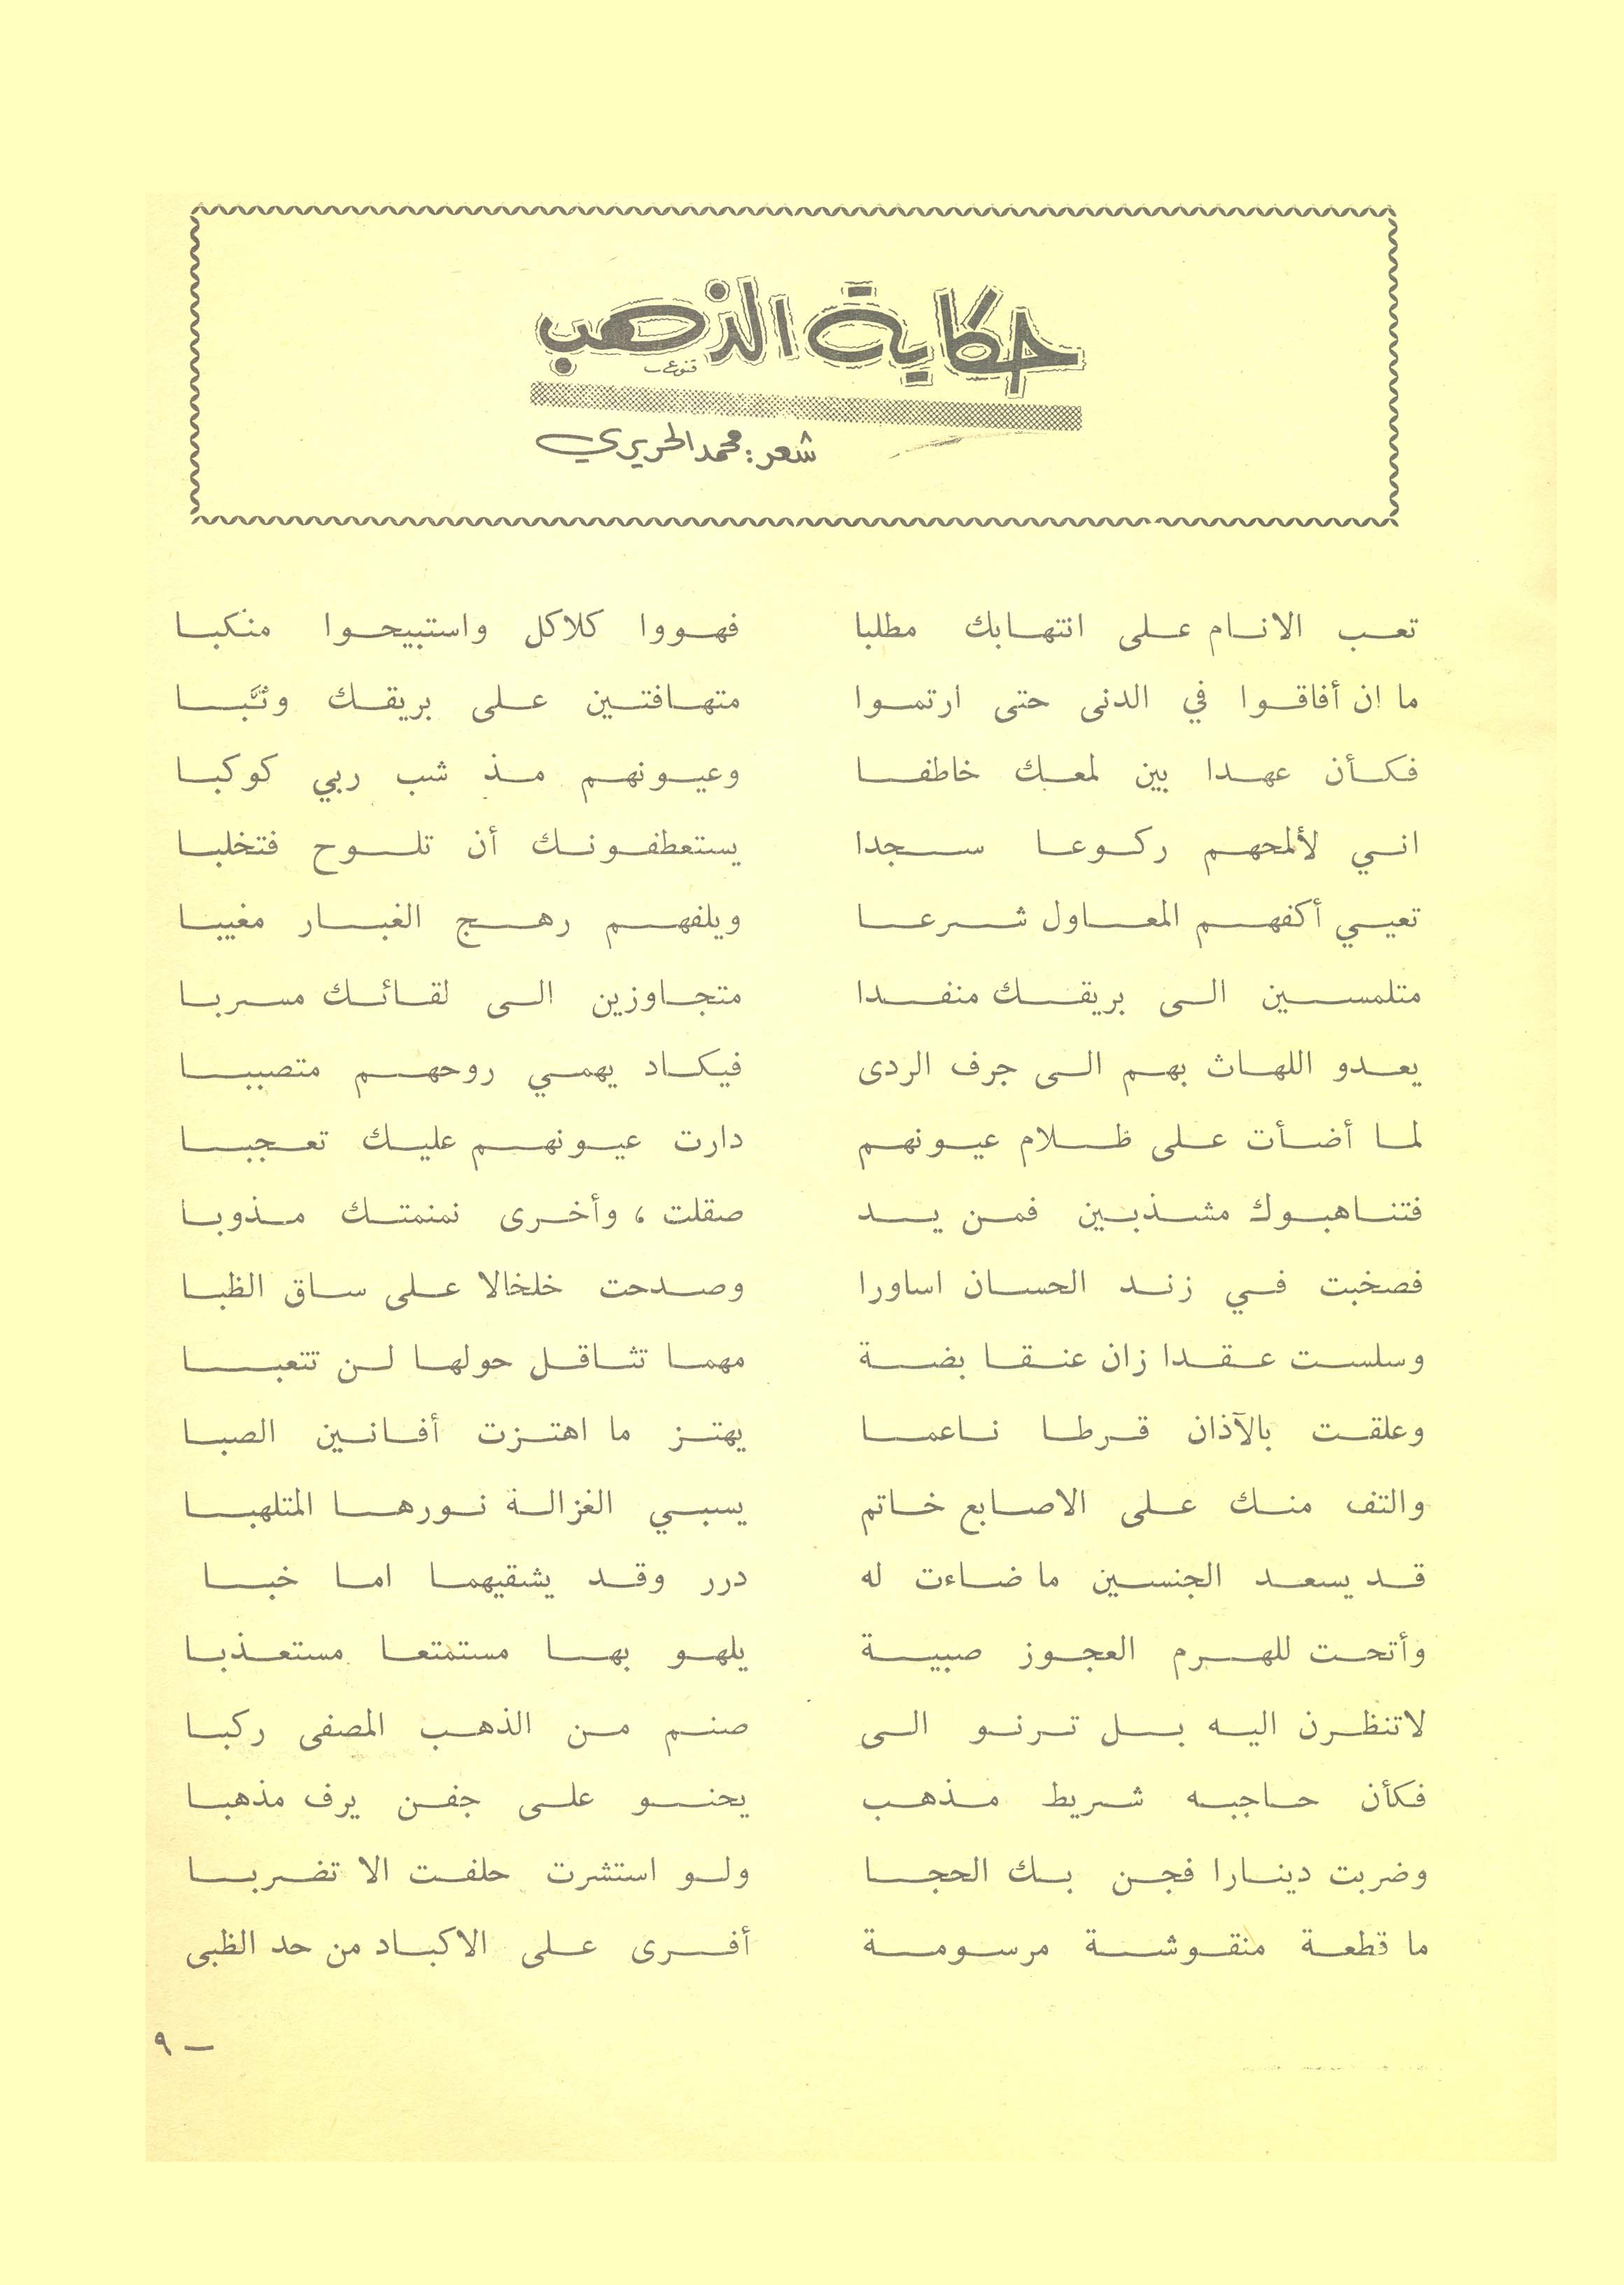 حكاية الذهب
شعر: محمد الحريري
تعب الانام على انتهابك مطلبا فهووا كلاكل واستبيحوا منكبا
ما ان أفاقوا في الدنى حتى ارتموا متهافتين على بريقك وثّبا
فكأن عهدا بين لمعك خاطفا وعيونهم مذ شب ربي كوكبا
اني لألمحهم ركوعا سجدا يستعطفونك أن تلوح فتخلبا
تعيي أكفهم المعاول شرعا ويلفهم رهج الغبار مغيبا
متلمسين الى بريقك منفدا متجاوزين الى لقائك مسربا
يعدو اللهاث بهم الى جرف الردى فيكاد يهمي روحهم متصببا
لما أضأت على ظلام عيونهم دارت عيونهم عليك تعجبا
فتناهبوك مشذبين فمن يد صقلت ، وأخرى نمنمتك مذوبا
فصخبت في زند الحسان اساورا وصدحت خلخالا على ساق الظبا
وسلست عقدا زان عنقا بضة مهما تثاقل حولها لن تتعبا
وعلقت بالآذان قرطا ناعما يهتز ما اهتزت أفانين الصبا
والتف منك على الاصابع خاتم يسبي الغزالة نورها المتلهبا
قد يسعد الجنسين ما ضاءت له درر وقد يشقيهما اما خبا
وأتحت للهرم العجوز صبية يلهو بها مستمتعا مستعذبا
لاتنظرن اليه بل ترنو الى صنم من الذهب المصفى ركبا
فكأن حاجبه شريط مذهب يحنو على جفن يرف مذهبا
وضربت دينارا فجن بك الحجا ولو استشرت حلفت الا تضربا
ما قطعة منقوشة مرسومة أفرى على الاكباد من حد الظبى
— ٩